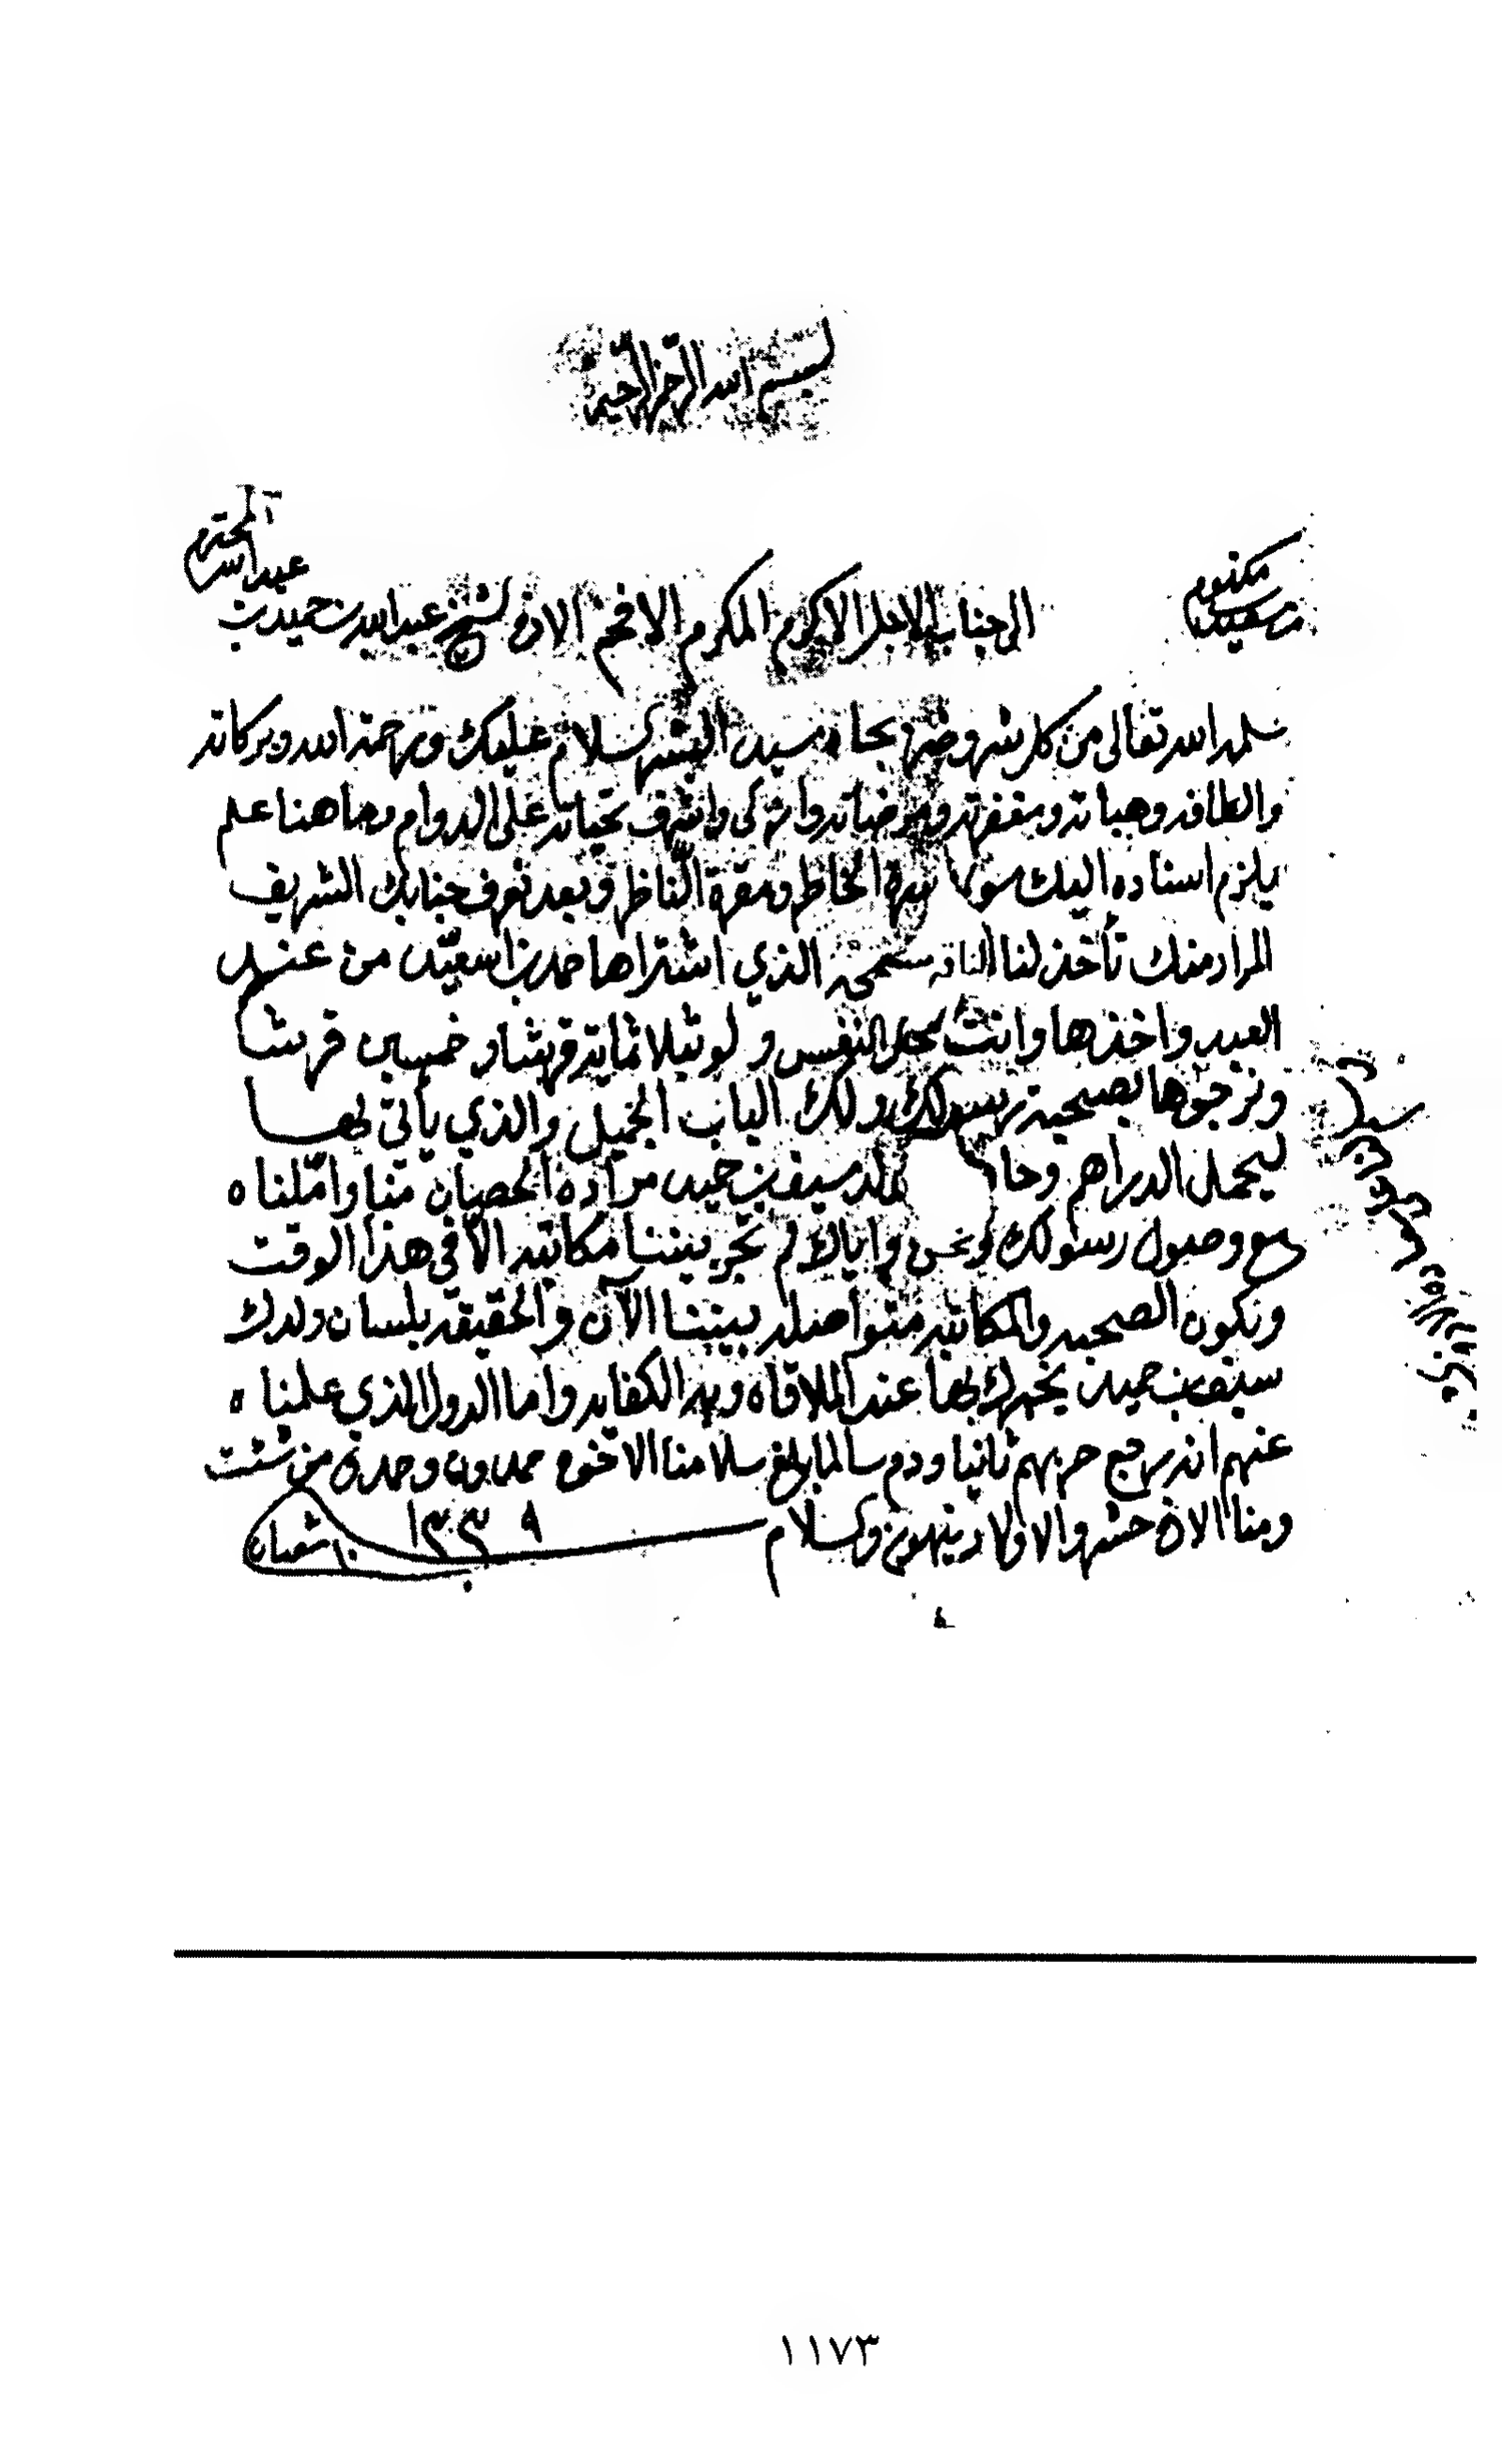 بسم الله الرحمن الرحيم
المحترم
عبدالله
مكتوم
بن سعيد
الى جناب الاجل الاكرم المكرم الافخم الاخ الشيخ عبدالله بن حميد بن
سلمه الله تعالى من كل شر وضر بجاه سيد البشر السلام عليك ورحمة الله وبركاته
والطافه وهباته ومغفرته ومرضاته وازكى واشرف تحياته على الدوام وما هنا علم
يلزم اسناده اليك سوى سرة الخاطر ومقرة الناظر وبعد نعرف جنابك الشريف
المراد منك تأخذ لنا الناقة الذي اشتراها حمد بن سعيد من
العبيد واخذها وانت بمحل النفس ولو بثلاثماية قرشا وخمسين قرشا
ونرجوها بصحبة رسولك ولك الباب الجميل والذي يأتي لها
ليحمل الدراهم سيف بن حميد مراده الحصان منا واملناه
مع وصول رسولك ونحن واياك لم تجر بيننا مكاتبه الا في هذا الوقت
وتكون الصحبه والمكاتبه متواصله بيننا الآن والحقيقه بلسان ولدك
سيف بن حميد يخبرك بها عند الملاقاه وبه الكفايه واما الدول الذي علمناه
عنهم انه يرجع حربهم ثانيا ودم سالما بلغ سلامنا الاخوه ومن شئت
ومنا الاخ حشر والاولاد ينهون والسلام
١٠ شعبان ١٣٣٩
١١٧٣